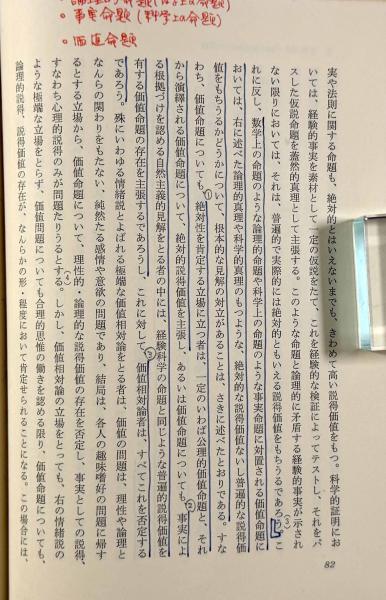 ・論理的命題(法学上の命題)
・事実命題(科学上の命題)
・価値命題
82
実や法則に関する命題も、絶対的とはいえないまでも、きわめて高い説得価値をもつ。科学的証明にお
いては、経験的事実を素材として一定の仮説をたて、これを経験的な検証によってテストし、それをパ
スした仮説命題を蓋然的真理として主張する。このような命題と論理的に矛盾する経験的事実が示され
ない限りにおいては、それは、普遍的で実際的には絶対的ともいえる説得価値をもちうるであろう。こ
れに反し、数学上の命題のような論理的命題や科学上の命題のような事実命題に対置される価値命題に
おいては、右に述べた論理的真理や科学的真理のもつような、絶対的な説得価値ないし普遍的な説得価
値をもちうるかどうかについて、根本的な見解の対立があることは、さきに述べたとおりである。すな
わち、価値命題についても絶対性を肯定する立場に立つ者は、一定のいわば公理的価値命題と、それ
から演繹される価値命題について、絶対的説得価値を主張し、あるいは価値命題についても、事実によ
る根拠づけを認める自然主義的見解をとる者の中には、経験科学の命題と同じような普遍的説得価値を
有する価値命題の存在を主張するであろうし、これに対して、価値相対論者は、すべてこれを否定する
であろう。殊にいわゆる情緒説とよばれる極端な価値相対論をとる者は、価値の問題は、理性や論理と
なんらの関わりをもたない、純然たる感情や意欲の問題であり、結局は、各人の趣味嗜好の問題に帰す
るとする立場から、価値命題について、理性的・論理的な説得価値の存在を否定し、事実としての説得、
すなわち心理的説得のみが問題たりうるとする。しかし、価値相対論の立場をとっても、右の情緒説の
ような極端な立場をとらず、価値問題についても合理的思惟の働きを認める限り、価値命題についても、
論理的説得、説得価値の存在が、なんらかの形・程度において肯定せられることになる。この場合には、
(3)
①
②
③
(4)